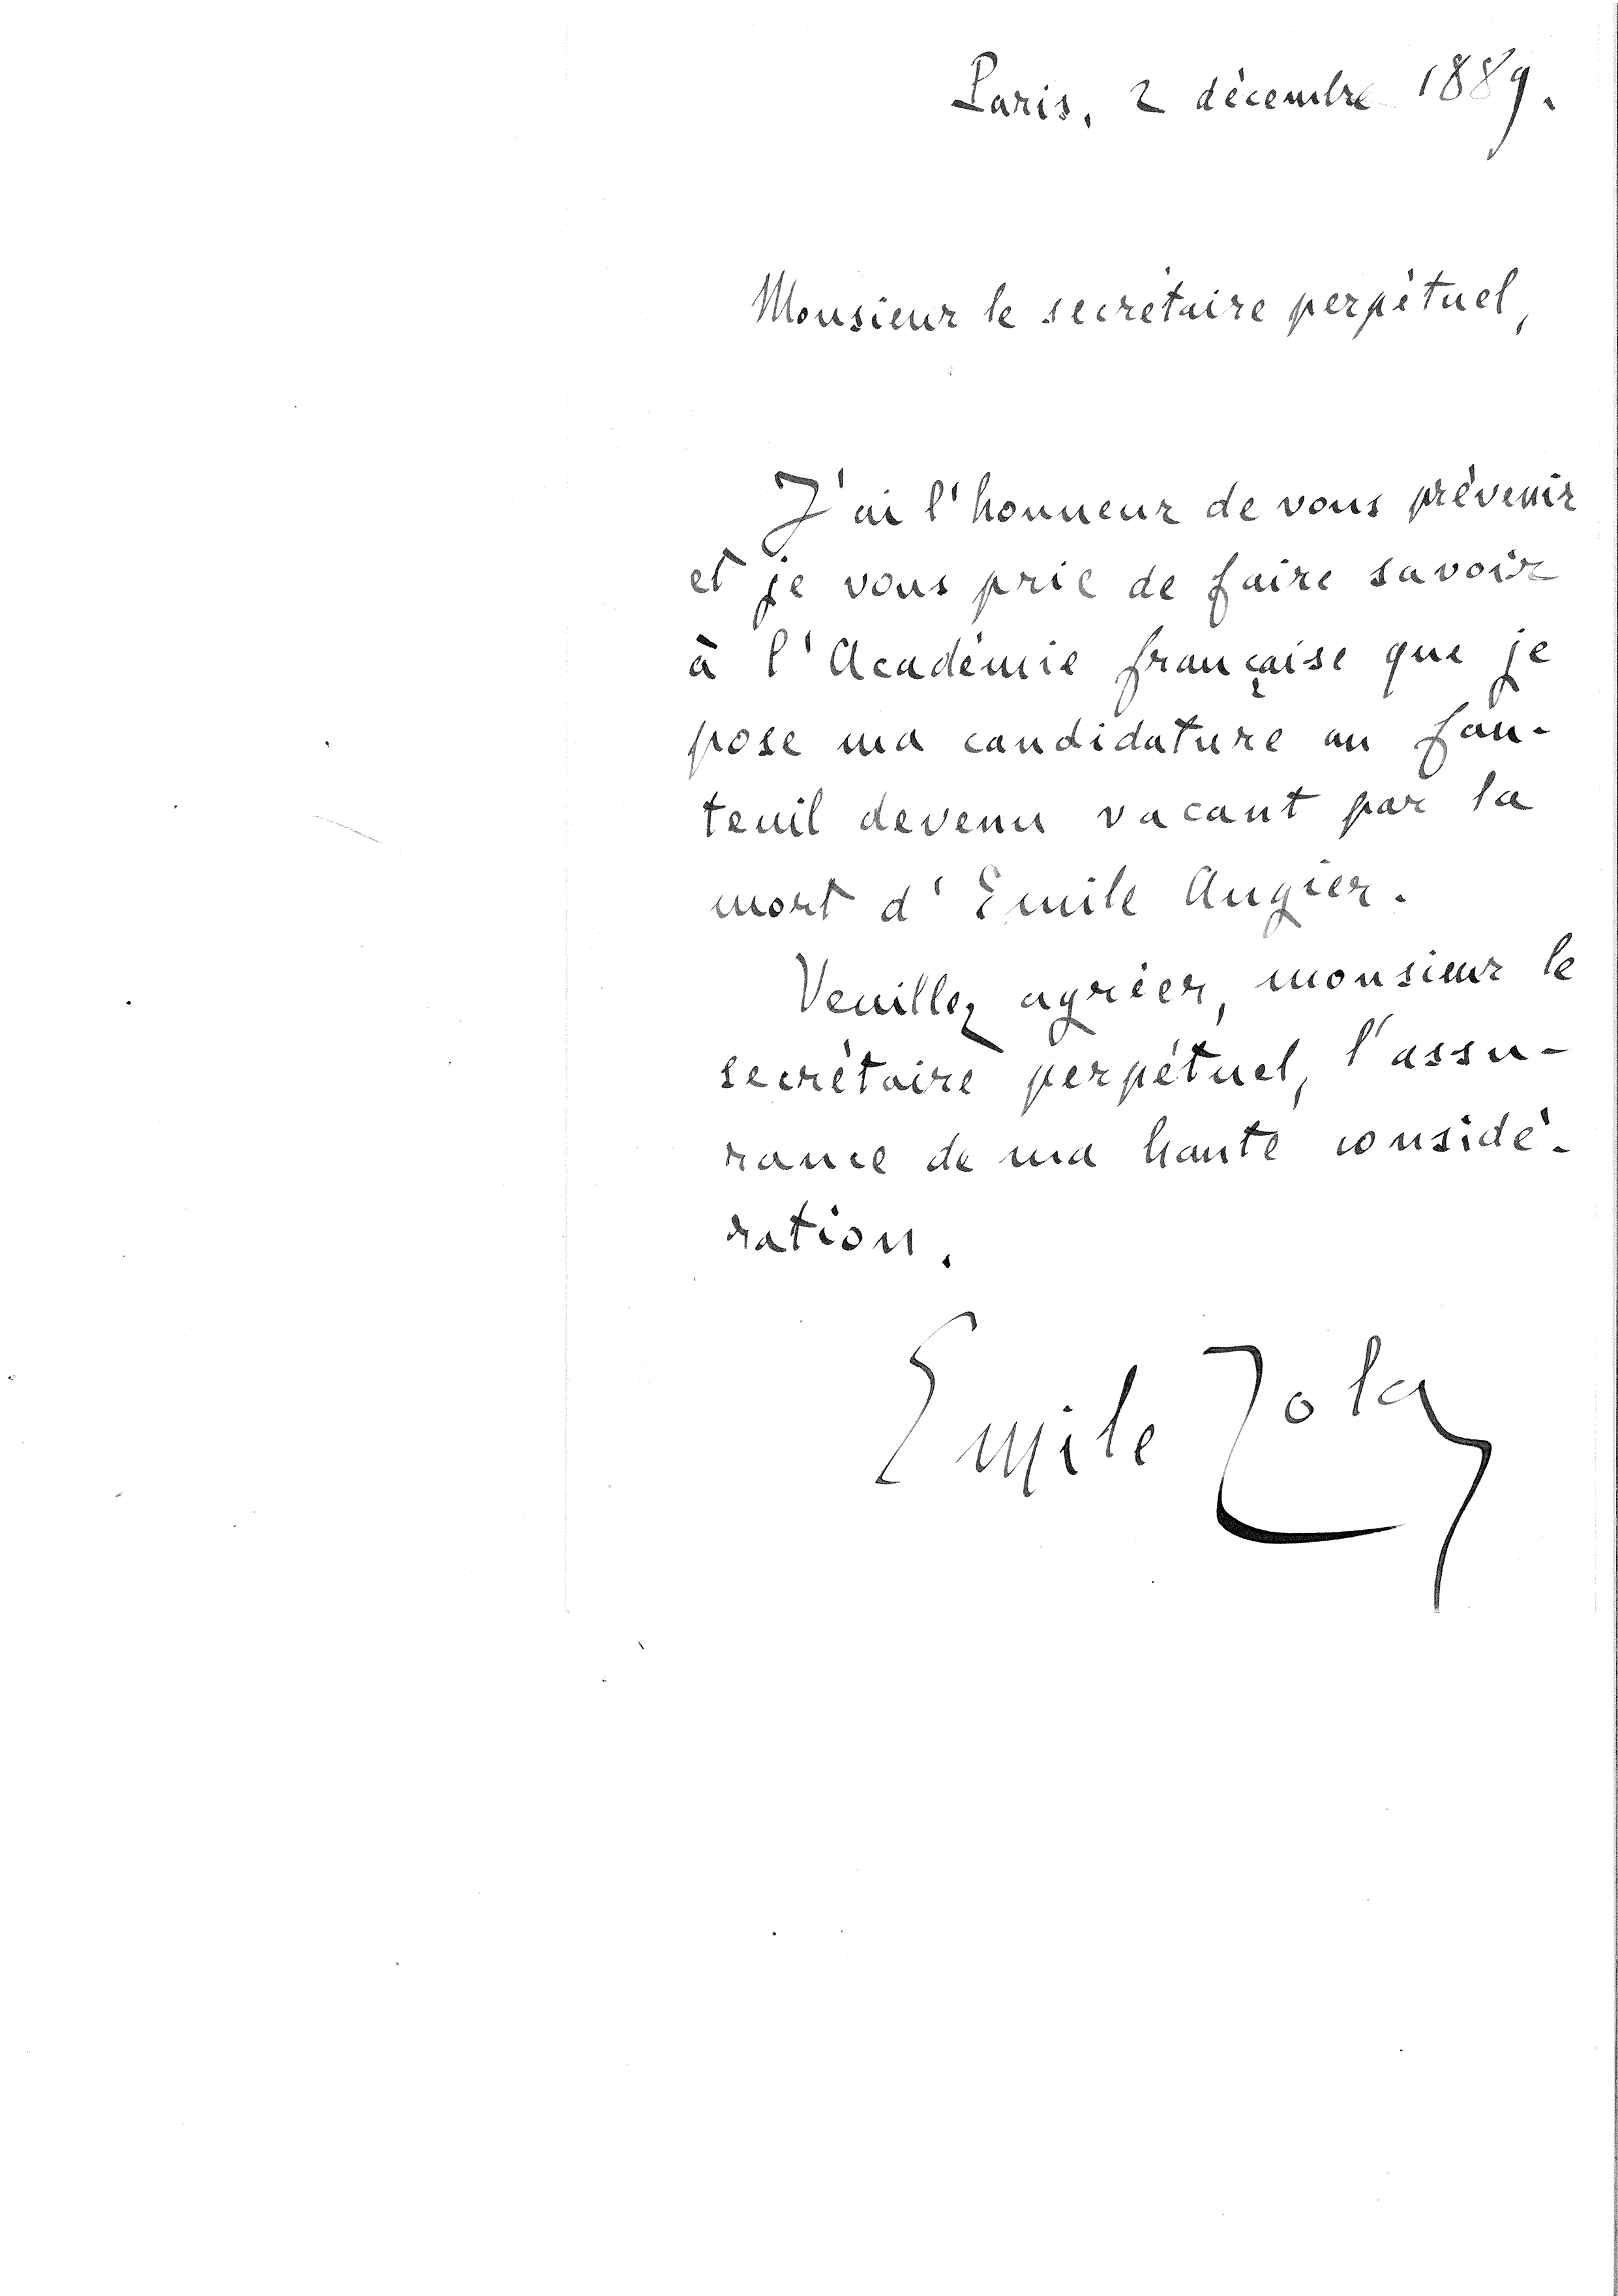 Paris, 2 décembre 1889.
Monsieur le secrétaire perpétuel,
J'ai l'honneur de vous prévenir
et je vous prie de faire savoir
à l'Académie française que je
pose ma candidature au fau-
teuil devenu vacant par la
mort d'Emile Augier.
Veuillez agréer, monsieur le
secrétaire perpétuel, l'assu-
rance de ma haute considé-
ration.
Emile Zola